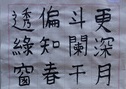 更深月
斗闌干
偏知春
透綠窗